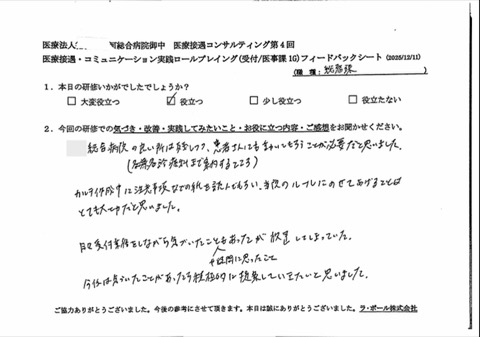 医療法人 総合病院御中 医療接遇コンサルティング第4回
医療接遇・コミュニケーション実践ロールプレイング(受付/医事課1G)フィードバックシート (2025/12/11)
(職種: 総務課)
1. 本日の研修いかがでしたでしょうか?
□ 大変役立つ ☑ 役立つ □ 少し役立つ □ 役立たない
2. 今回の研修での気づき・改善・実践してみたいこと・お役に立つ内容・ご感想をお聞かせください。
総合病院の良い所は 患者さんにも いてもらうことが必要だと思いました。
( まで案内するところ)
カルテ作成中に注意事項などの紙を読んでもらい、当院のルールにのせてあげることは
とても大切だと思いました。
日々受付業務をしながら気づいたこともあったが放置してしまっていた。
疑問に思ったこと
今後は気づいたことがあったら積極的に提案していきたいと思いました。
ご協力ありがとうございました。今後の参考にさせて頂きます。本日は誠にありがとうございました。 ラ・ポール株式会社